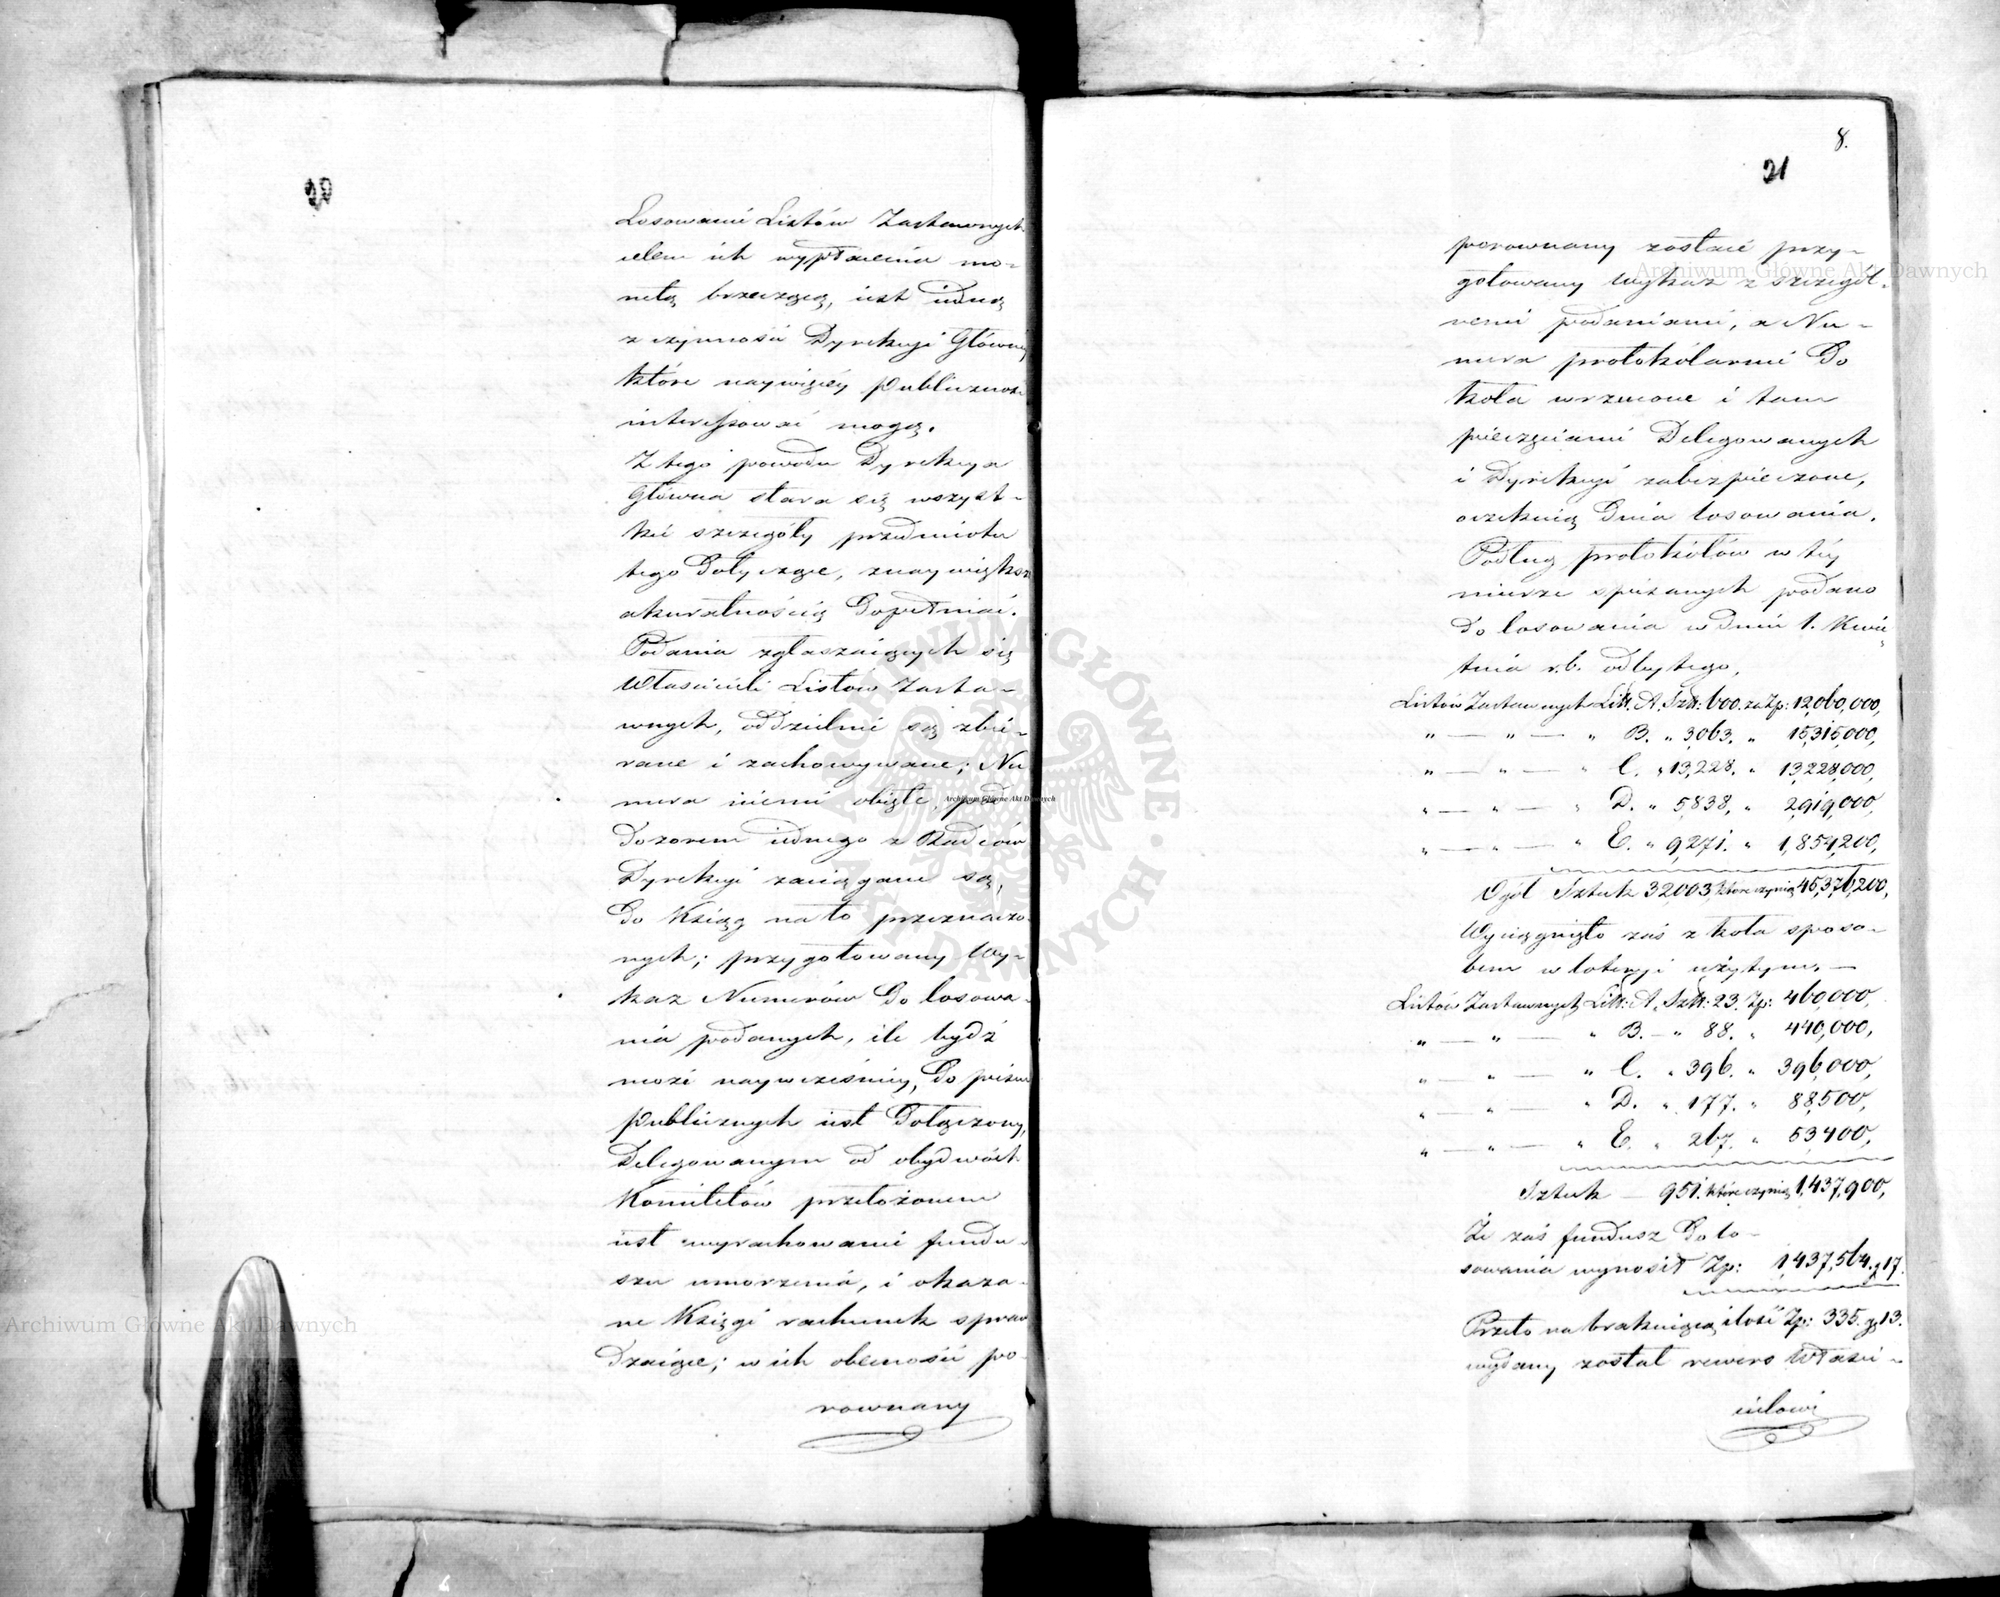 20
Losowanie Listów Zastawnych
celem ich wypłacenia mo-
netą brzęczącą, iest iedną
z czynności Dyrekcyi Główney
które naywięcéy Publiczność
interessować mogą.
Z tego powodu Dyrekcya
Główna stara się wszyst-
kie szczegóły przedmiotu
tego dotyczące, z naywiększą
akuratnością dopełniać.
Podania zgłaszaiących się
Właścicieli Listów Zasta-
wnych, oddzielnie są zbie-
rane i zachowywane; Nu
mera niemi obięte, pod
dozorem iednego z Radców
Dyrekcyi zaciągane są,
do Książg na to przeznaczo-
nych; przygotowany Wy-
kaz Numerów do losowa-
nia podanych, ile bydź
może naywcześniey, do pism
publicznych iest dołączony,
Delegowanym od obydwóch
Komitetów przełożonem
iest wyrachowanie fundu-
szu umorzenia, i okaza-
ne Księgi rachunek spraw
dzaiące; w ich obecności po-
rownany
8.
21
porownany zostaie przy-
gotowany Wykaz z szczegół-
nemi podaniami, a Nu-
mera protokólarnie do
koła wrzucone i tam
pieczęciami Delegowanych
i Dyrekcyi zabezpieczone,
oczekuią dnia losowania.
Podług protokółów w téy
mierze spisanych podano
do losowania w dniu 1. Kwie
tnia r. b. odbytego,
Listów Zastawnych Litt. A. Sztk: 600. za Zp: 12,060,000,
" — " — " B. " 3,063. " 15,315,000,
" — " — " C. " 13,228. " 13,228,000,
" — " — " D. " 5,838, " 2,919,000,
" — " — " E. " 9,271. " 1,854,200,
Ogół Sztuk 32003 które czynią 45,376,200,
Wyciągnięto zaś z koła sposo-
bem w loteryi użytym, —
Listów Zastawnych Litt: A. Sztk: 23. Zp: 460,000,
" — " — " B. — " 88. " 440,000,
" — " — " C. " 396. " 396,000,
" — " — " D. " 177. " 88,500,
" — " — " E. " 267. " 53,400,
Sztuk — 951. które czynią 1,437,900,
Że zaś fundusz do lo-
sowania wynosił Zp: 1,437,564. g 17.
Przeto na brakuiącą ilość Zp: 335. g 13.
wydany został rewers Właści-
cielowi
Archiwum Główne Akt Dawnych
Archiwum Główne Akt Dawnych
Archiwum Główne Akt Dawnych
ARCHIWUM GŁÓWNE AKT DAWNYCH